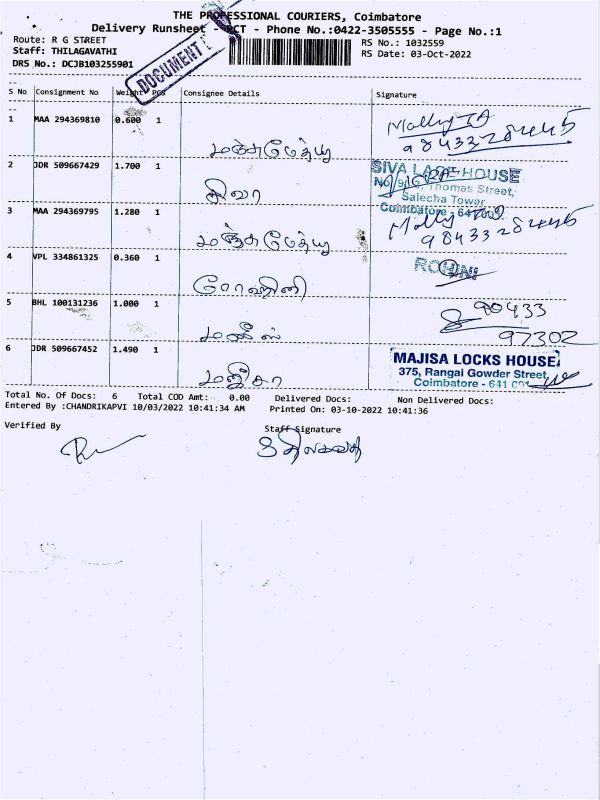 THE PROFESSIONAL COURIERS, Coimbatore
Delivery Runsheet - PCT - Phone No.:0422-3505555 - Page No.:1
Route: R G STREET
RS No.: 1032559
Staff: THILAGAVATHI
RS Date: 03-Oct-2022
DRS No.: DCJB103255901
DOCUMENT
S No Consignment No Weight PCS Consignee Details Signature
1 MAA 294369810 0.600 1 மஞ்சுமேத்யு Molly TA
98433 28445
2 JDR 509667429 1.700 1 சிவா SIVA LACE HOUSE
Thomas Street,
Salecha Tower
Coimbatore - 641001
3 MAA 294369795 1.280 1 மஞ்சுமேத்யு Molly
98433 28445
4 VPL 334861325 0.360 1 ரோஹினி ROHINI
5 BHL 100131236 1.000 1 90433
97302
6 JDR 509667452 1.490 1 மஜிசா MAJISA LOCKS HOUSE
375, Rangai Gowder Street,
Coimbatore - 641 001
Total No. Of Docs: 6 Total COD Amt: 0.00 Delivered Docs: Non Delivered Docs:
Entered By :CHANDRIKAPVI 10/03/2022 10:41:34 AM Printed On: 03-10-2022 10:41:36
Verified By Staff Signature